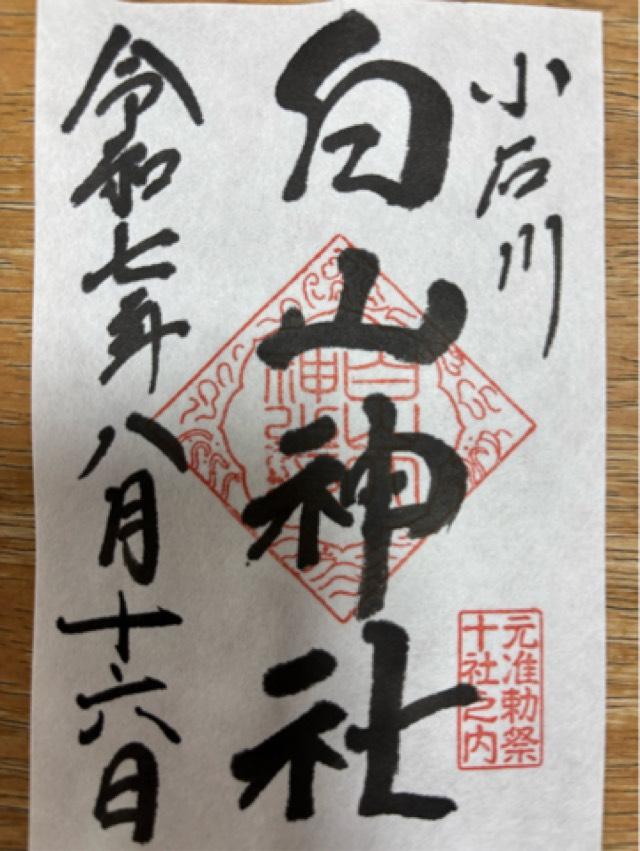 小石川
元准勅祭
十社之内
白山神社
令和七年八月十六日